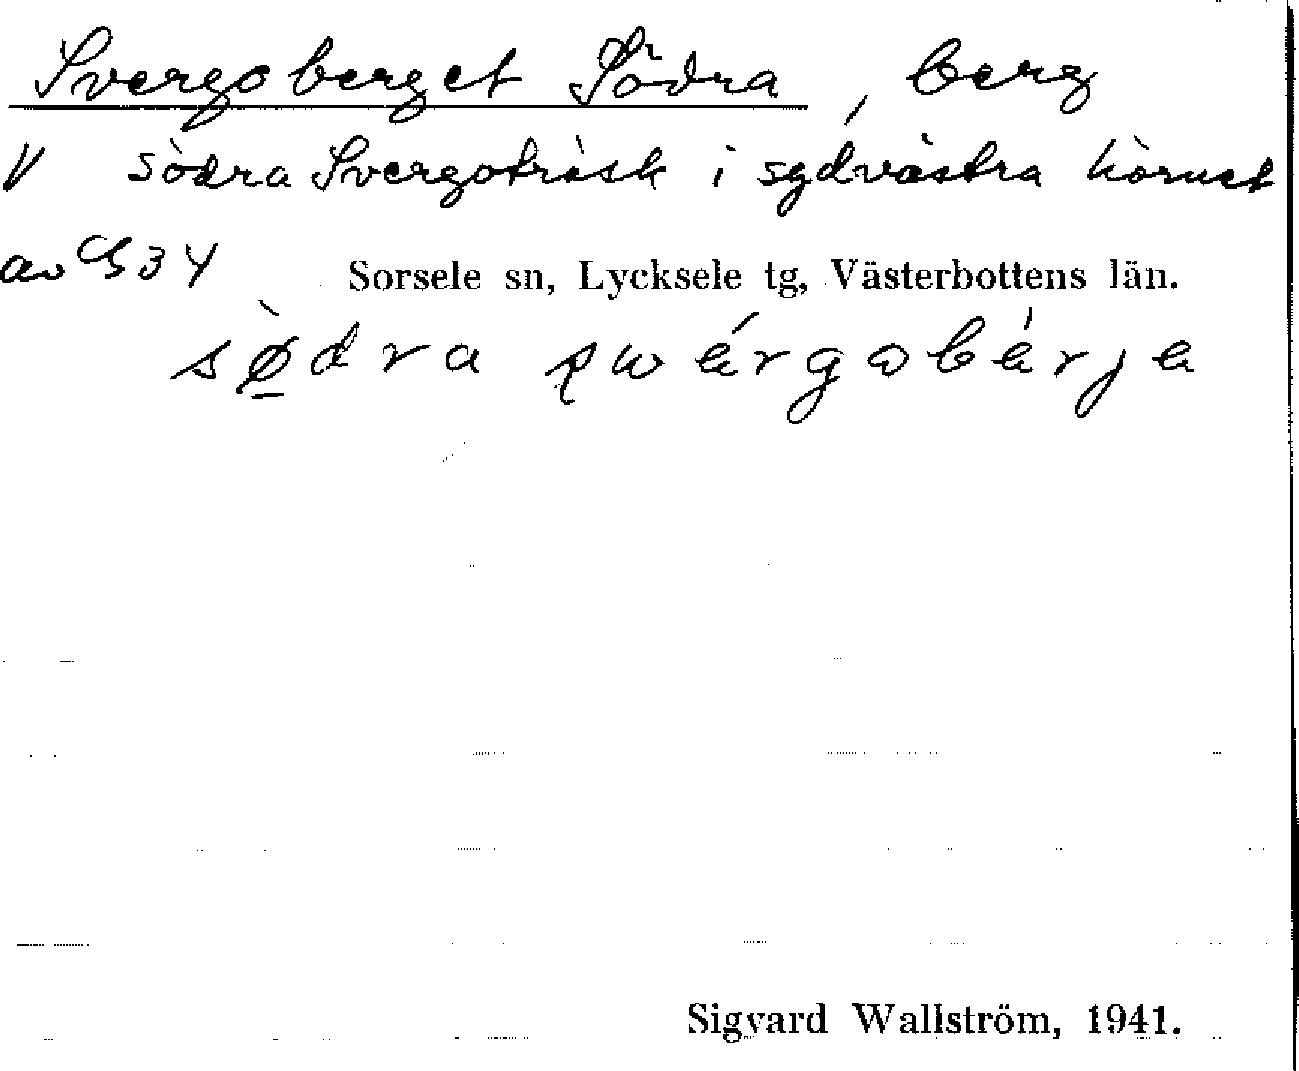 Svergoberget Södra, berg
V södra Svergoträsk i sydvästra hörnet
av G 34
Sorsele sn, Lycksele tg, Västerbottens län.
sø̠̀dra swérgobérje
Sigvard Wallström, 1941.